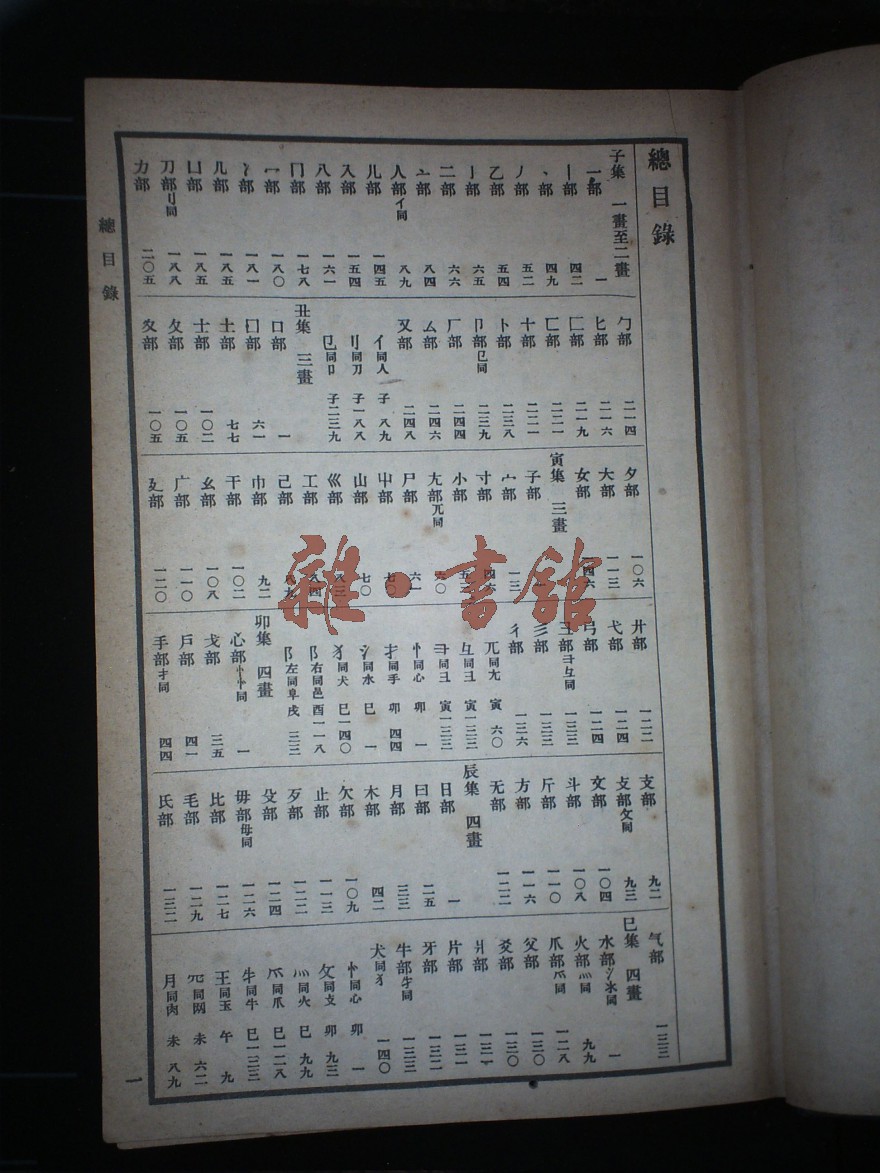 總目錄
子集 一畫至二畫
一部 一
丨部 四二
丶部 四九
丿部 五二
乙部 五四
亅部 六五
二部 六六
亠部 八四
人部亻同 八九
儿部 一四五
入部 一五四
八部 一六一
冂部 一七八
冖部 一八〇
冫部 一八一
几部 一八五
凵部 一八五
刀部刂同 一八八
力部 二〇五
勹部 二一四
匕部 二一六
匚部 二一九
匸部 二二一
十部 二二一
卜部 二三八
卩部㔾同 二三九
厂部 二四四
厶部 二四六
又部 二四八
亻同人 子 八九
刂同刀 子一八八
㔾同卩 子二三九
丑集 三畫
口部 一
囗部 六一
土部 七七
士部 一〇二
夂部 一〇五
夊部 一〇五
夕部 一〇六
大部 一一三
女部
寅集 三畫
子部
宀部
寸部
小部
尢部兀同
尸部 六一
屮部 七〇
山部 七〇
巛部
工部
己部
巾部 九二
干部 一〇二
幺部 一〇八
广部 一一〇
廴部 一二〇
廾部 一二二
弋部 一二四
弓部 一二四
彐部彑同 一三三
彡部 一三三
彳部 一三六
兀同尢 寅 六〇
彑同彐 寅一三三
彐同彐 寅一三三
忄同心 卯 一
扌同手 卯 四四
氵同水 巳 一
犭同犬 巳一四〇
阝右同邑 酉一一八
阝左同阜 戌 三三
卯集 四畫
心部忄㣺同 一
戈部 三五
戶部 四一
手部扌同 四四
支部 九二
攴部攵同 九三
文部 一〇四
斗部 一〇八
斤部 一一〇
方部 一一六
无部 一二二
辰集 四畫
日部 一
曰部 二五
月部 三三
木部 四二
欠部 一〇九
止部 一一三
歹部 一二二
殳部 一二四
毋部母同 一二六
比部 一二七
毛部 一二九
氏部 一三二
气部 一三三
巳集 四畫
水部氵氺同 一
火部灬同 九九
爪部爫同 一二八
父部 一三〇
爻部 一三〇
爿部 一三一
片部 一三一
牙部 一三二
牛部牜同 一三三
犬同犭 一四〇
忄同心 卯 一
攵同攴 卯 九三
灬同火 巳 九九
爫同爪 巳一二八
牜同牛 巳一三三
王同玉 午 九
罒同网 未 六二
月同肉 未 八九
總目錄
一
雜·書館